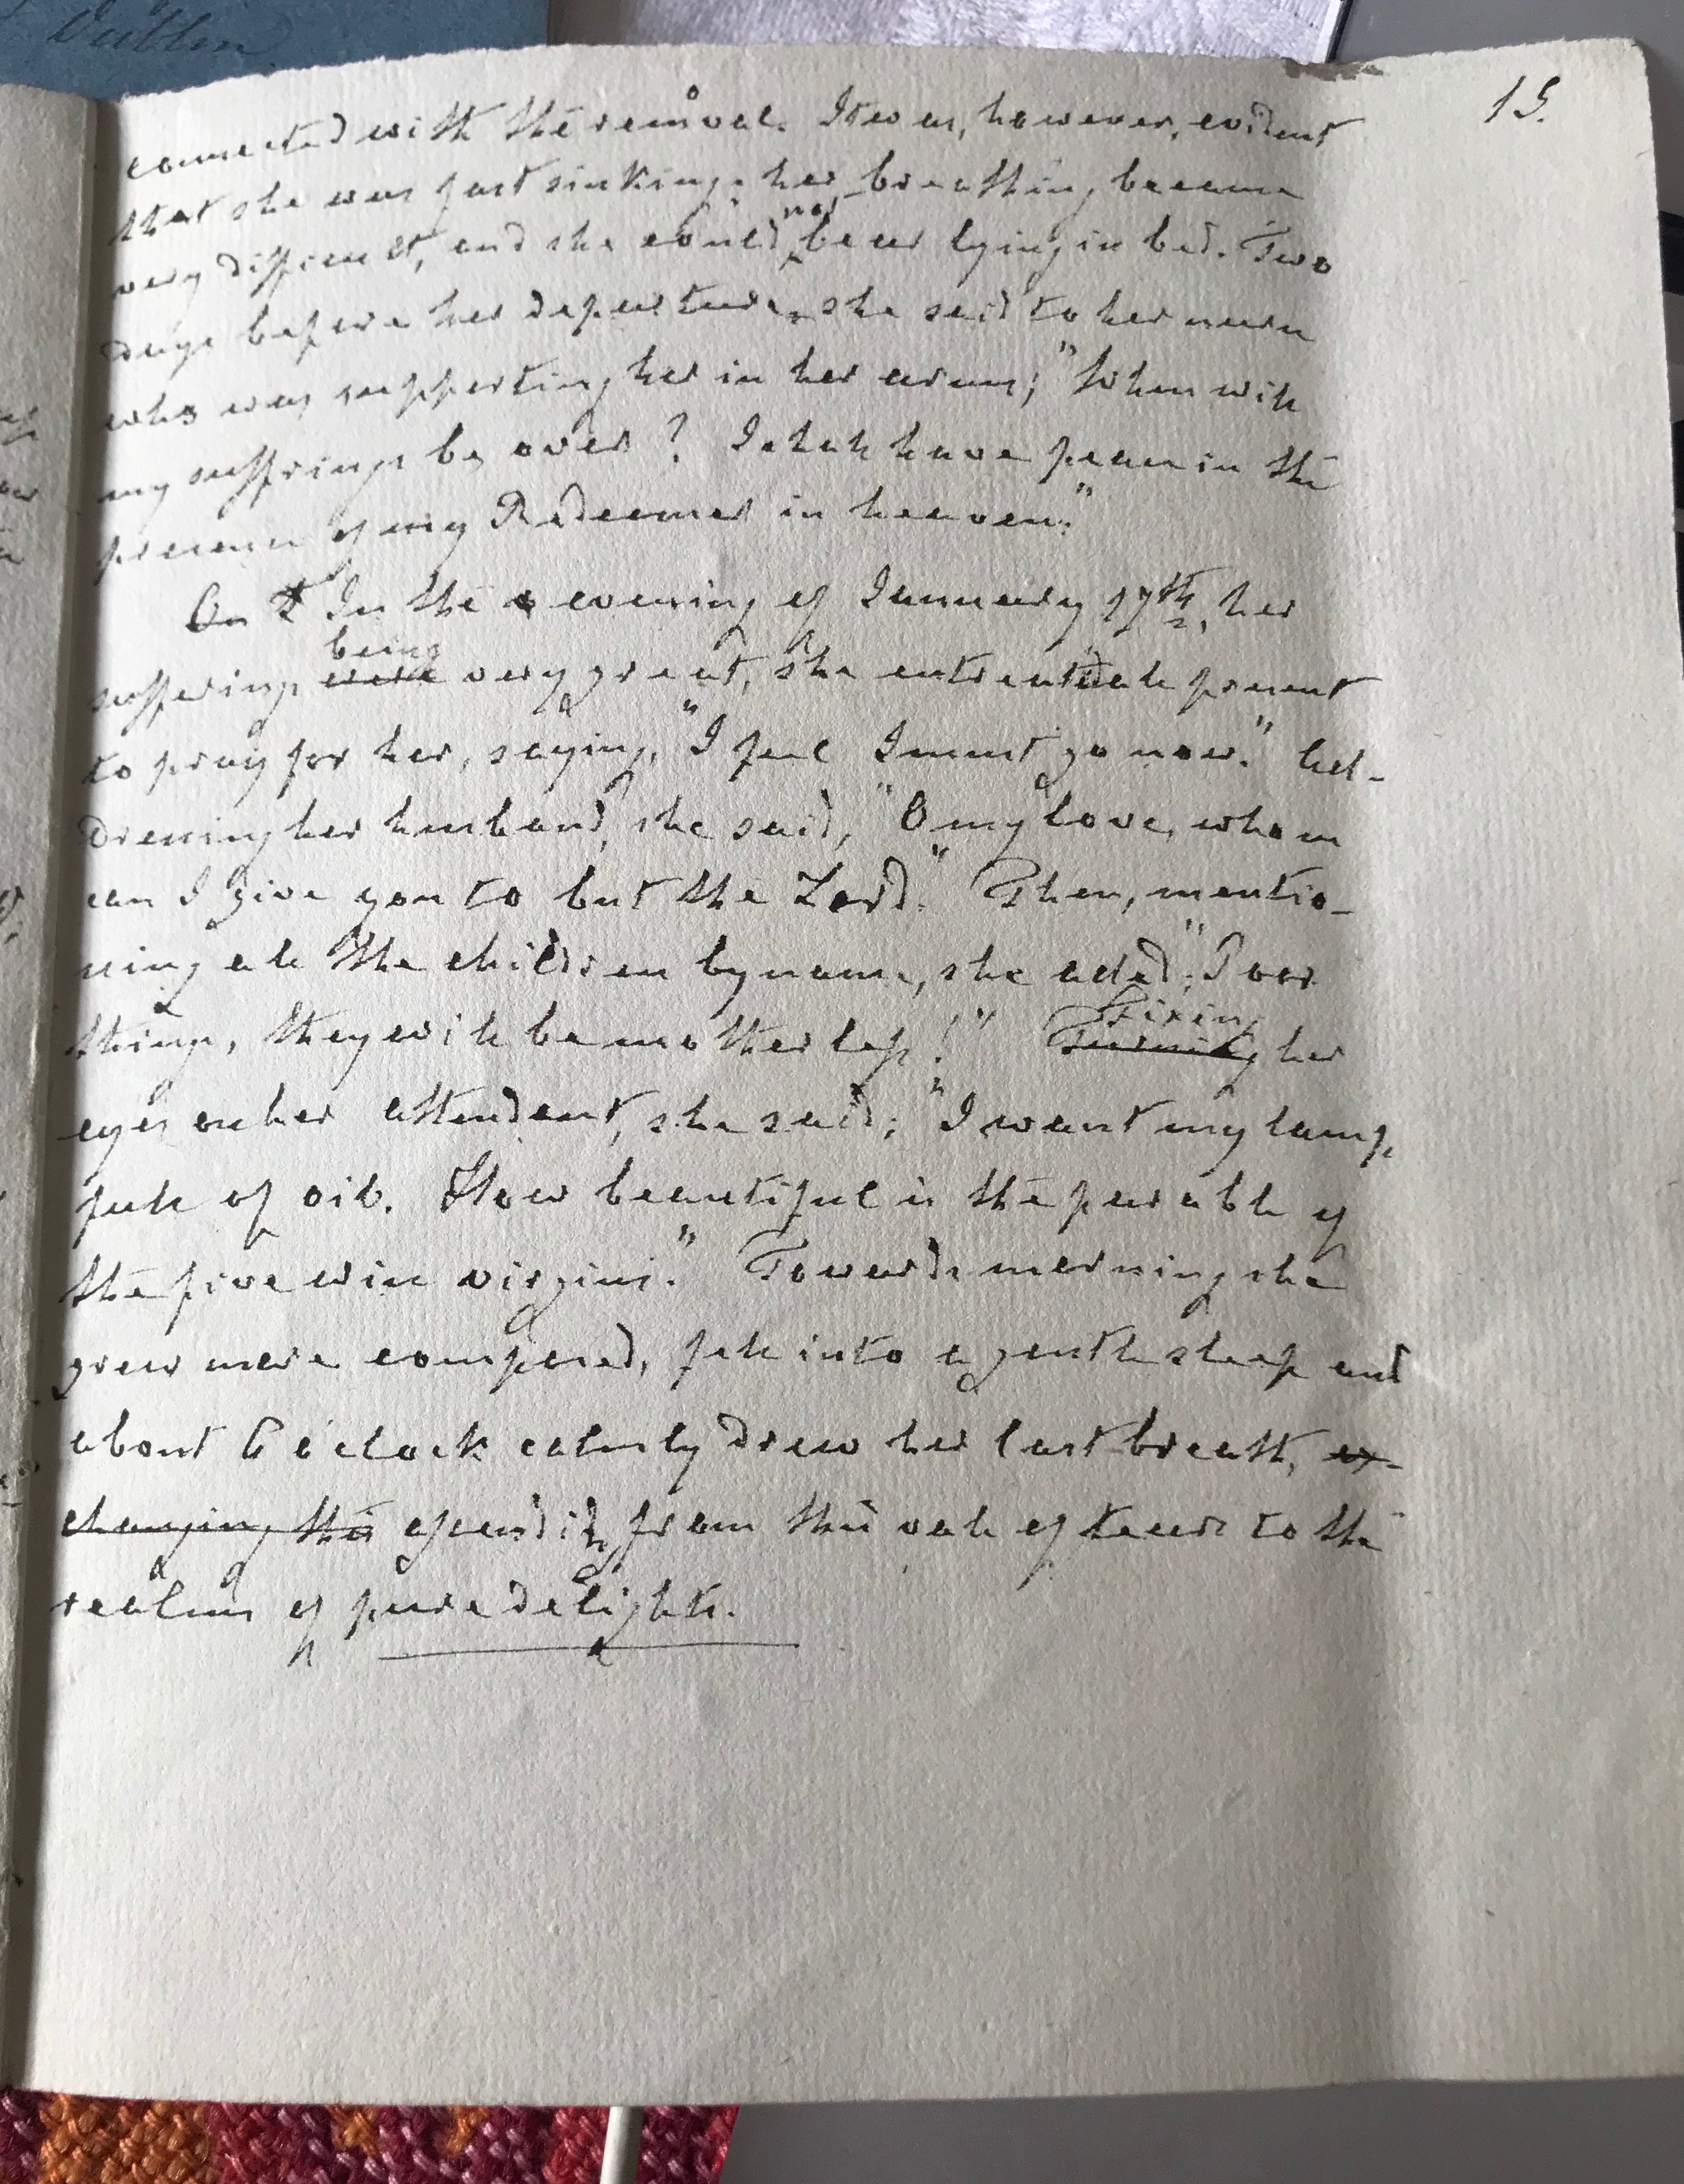 Dublin
15.
connected with the removal. It was, however, evident
that she was fast sinking: her breathing became
very difficult, and she could not bear lying in bed. Two
days before her departure, she said to her nurse
who was supporting her in her arms; "When will
my suffrings be over? I shall have peace in the
presence of my Redeemer in heaven."
On In the evening of January 17th, her
being
sufferings were very great, she entreated all present
to pray for her, saying, "I feel I must go now." Ad-
dressing her husband, she said, "O my love, whom
can I give you to but the Lord." Then, mentio-
ning all the children by name, she added; "Poor
things, they will be motherless!" Turning her
Fixing
eyes on her attendant, she said; "I want my lamp
full of oil. How beautiful is the parable of
the five wise virgins." Towards morning she
grew more composed, fell into a gentle sleep and
about 6 o'clock calmly drew her last breath, ex-
changing this speedily from this vale of tears to the
realms of pure delights.